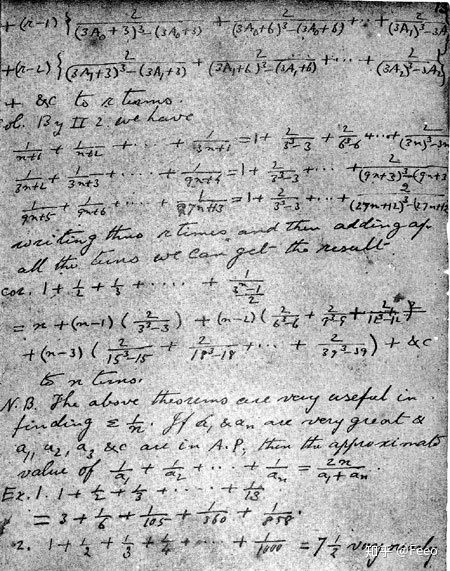 + (r-1) { 2/((3A₀+3)³-(3A₀+3)) + 2/((3A₀+6)³-(3A₀+6)) + ... + 2/((3A₁)³-3A
+ (r-2) { 2/((3A₁+3)³-(3A₁+3)) + 2/((3A₁+6)³-(3A₁+6)) + ... + 2/((3A₂)³-3A₂) }
+ &c to r terms.
Sol. By II 2 we have
1/(n+1) + 1/(n+2) + ... + 1/(3n+1) = 1 + 2/(3³-3) + 2/(6³-6) + ... + 2/((3n)³-3n
1/(3n+2) + 1/(3n+3) + ... + 1/(9n+4) = 1 + 2/(3³-3) + ... + 2/((9n+3)³-(9n+3
1/(9n+5) + 1/(9n+6) + ... + 1/(27n+13) = 1 + 2/(3³-3) + ... + 2/((27n+12)³-(27n+12
writing thus r times and then adding up
all the terms we can get the result.
Cor. 1 + 1/2 + 1/3 + .... + 1/((3ⁿ-1)/2)
= n + (n-1) ( 2/(3³-3) ) + (n-2) ( 2/(6³-6) + 2/(9³-9) + 2/(12³-12) )
+ (n-3) ( 2/(15³-15) + 2/(18³-18) + ... + 2/(39³-39) ) + &c
to n terms.
N.B. The above theorems are very useful in
finding Σ 1/n. If a₁ & aₙ are very great &
a₁, a₂, a₃ &c are in A.P, then the approximate
value of 1/a₁ + 1/a₂ + ... + 1/aₙ = 2n/(a₁+aₙ).
Ex. 1. 1 + 1/2 + 1/3 + .... + 1/13
= 3 + 1/6 + 1/105 + 1/360 + 1/858.
2. 1 + 1/2 + 1/3 + 1/4 + .... + 1/1000 = 7 1/2 very nearly
知乎 @Feeo